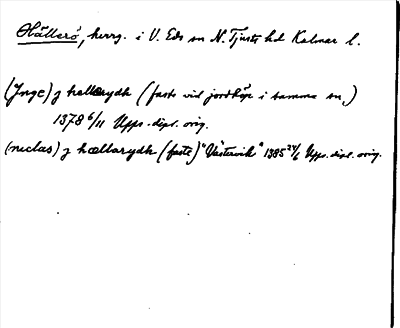 Hällerö, herrg. i V. Eds sn N. Tjusts hd Kalmar l.
(Jnge) j hællarydh (faste vid jordköp i samma sn.)
1378 6/11 Upps. dipl. orig.
(niclas) j hællarydh (faste) "Västervik" 1385 24/6 Upps. dipl. orig.